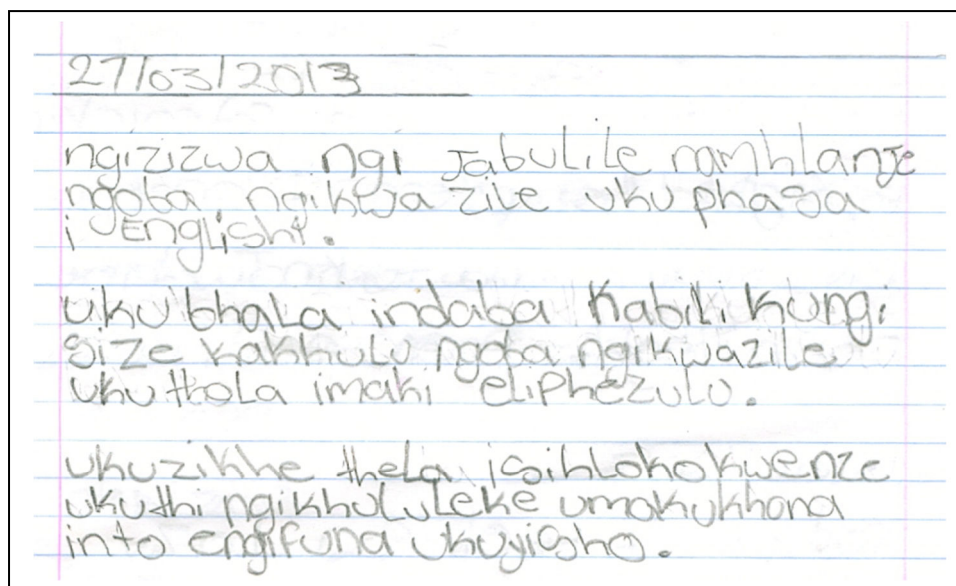 27/03/2013
ngizizwa ngi Jabulile namhlanje
ngoba ngikwa zile uku phasa
i English.
ukubhala indaba kabili kungi
size kakhulu ngoba ngikwazile
ukuthola imaki eliphezulu.
ukuzikhe thela isihloko kwenze
ukuthi ngikhululeke umakukhona
into engifuna ukuyisho.